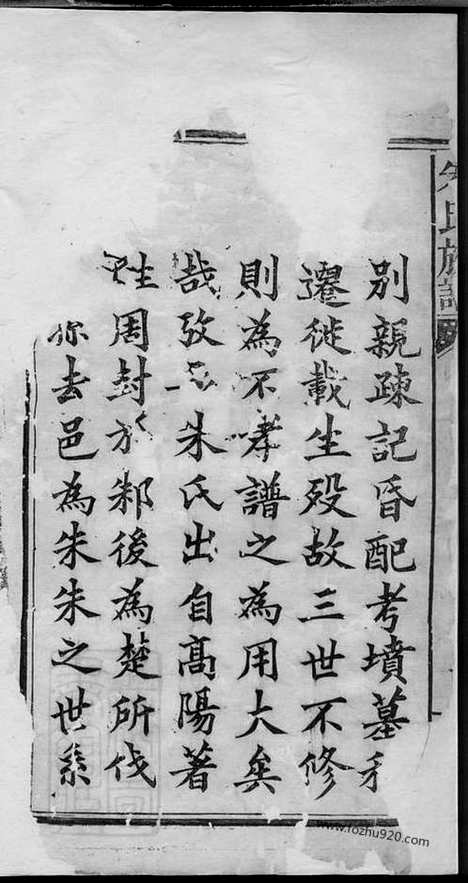 朱氏族譜
別親疎記昏配考墳墓
遷徙載生歿故三世不修
則為不孝譜之為用大矣
哉攷朱氏出自高陽著
姓周封於邾後為楚所伐
去邑為朱朱之世系
www.fozhu920.com